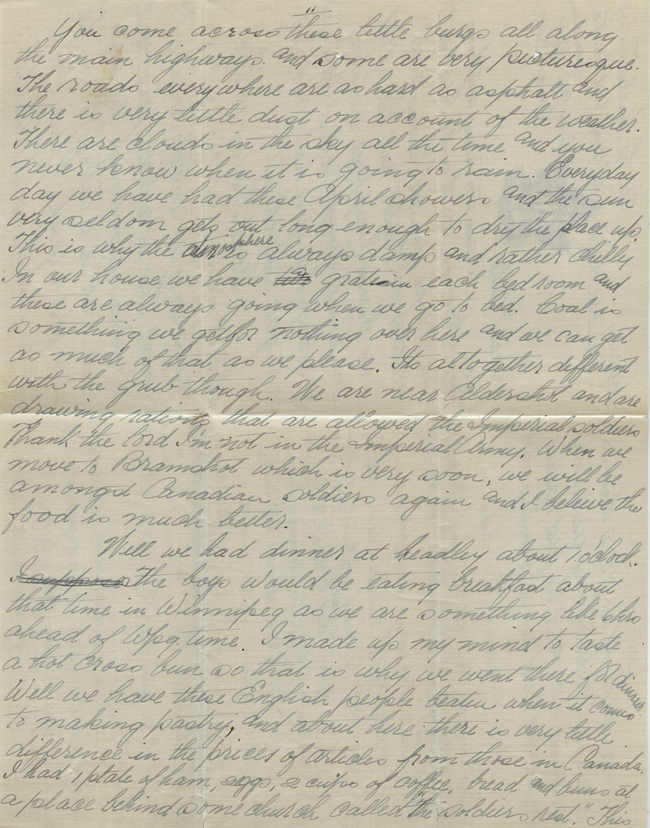 "
You come across these little burgs all along
the main highways and some are very picturesque.
The roads everywhere are as hard as asphalt and
there is very little dust on account of the weather.
There are clouds in the sky all the time and you
never know when it is going to rain. Everyday
day we have had these April showers and the sun
very seldom gets out long enough to dry the place up.
This is why the atmosphere is always damp and rather chilly
In our house we have grati in each bed room and
these are always going when we go to bed. Coal is
something we get for nothing over here and we can get
as much of that as we please. Its altogether different
with the grub though. We are near Aldershot and are
drawing rations that are allowed the Imperial soldiers
Thank the lord I'm not in the Imperial Army. When we
move to Bramshot which is very soon, we will be
amongst Canadian soldiers again and I believe the
food is much better.
Well we had dinner at headley about 1 o'clock.
I suppose the boys would be eating breakfast about
that time in Winnipeg as we are something like 6 hrs
ahead of Wpg. time. I made up my mind to taste
a hot cross bun so that is why we went there for dinner
Well we have these English people beaten when it comes
to making pastry, and about here there is very little
difference in the prices of articles from those in Canada.
I had 1 plate of ham, eggs, 2 cups of coffee, bread and buns at
a place behind some church called "the soldiers rest." This